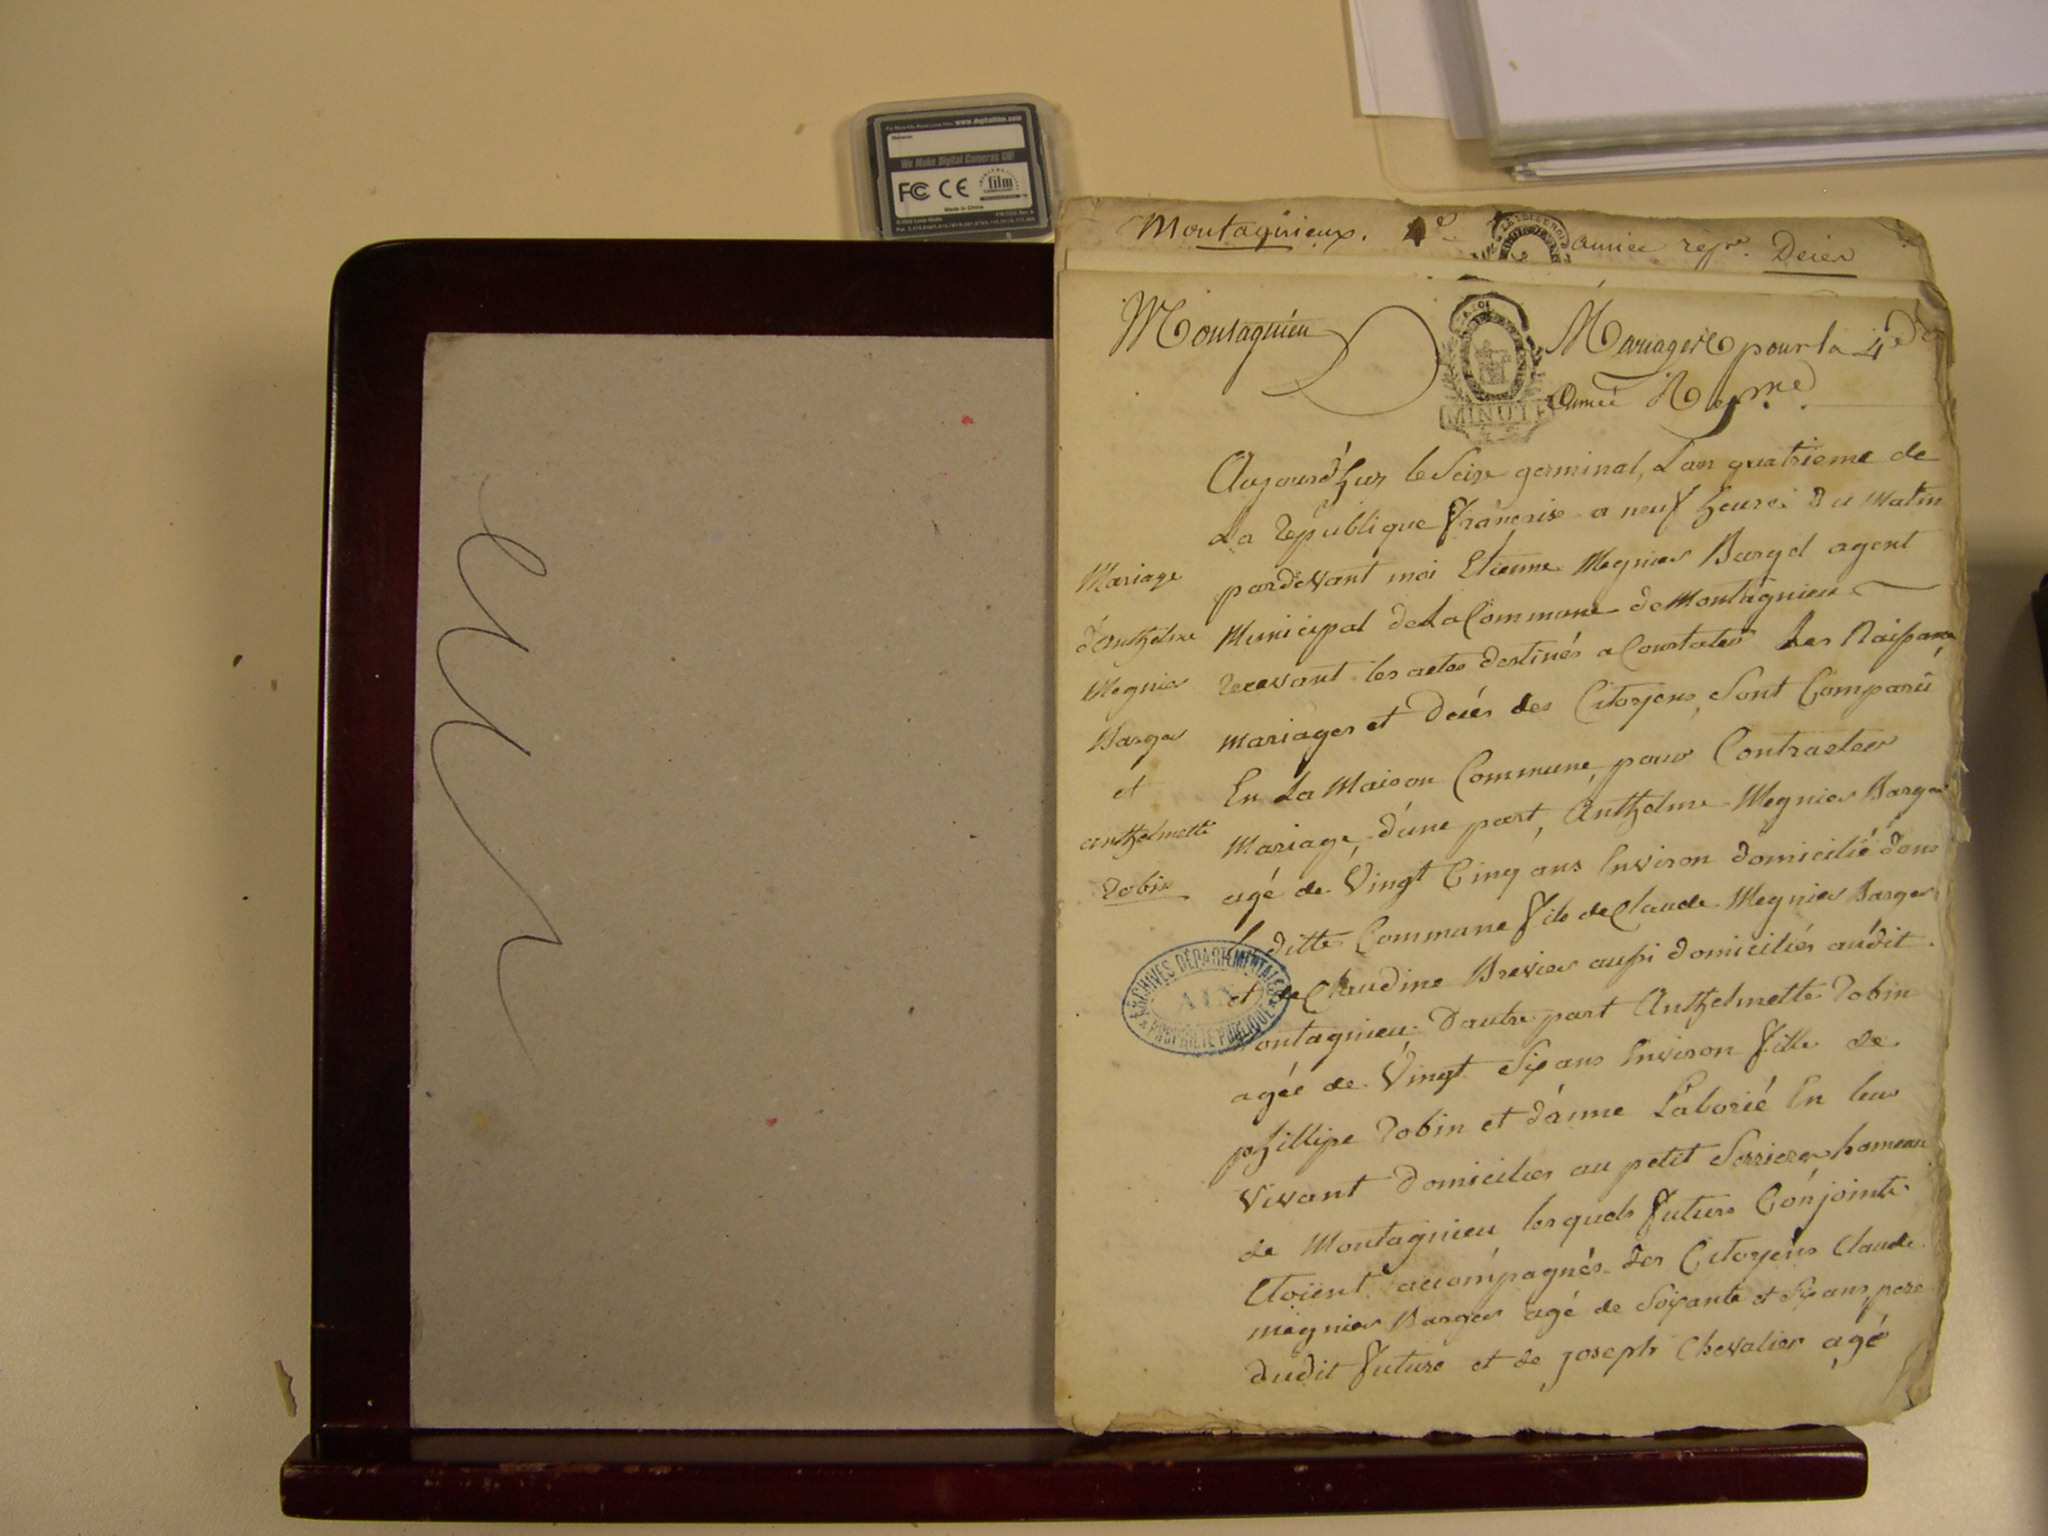 www.digitalfilm.com
We Make Digital Cameras Go!
FC CE film
Made in China
Montagnieux. 4e année repne. Décès
Montagnieu Mariages pour la 4e
MINUTE
année Repne
Aujourd'huy le Seize germinal, L'an quatrieme de
La République françoise a neuf heures du matin
pardevant moi Etienne Megnier Barget agent
Municipal de La Commune de Montagnieu
recevant les actes destinés a Constater Les Naissances
mariages et decés des Citoyens, Sont Comparû
En La Maison Commune, pour Contracter
Mariage, d'une part, Anthelme Megnier Barget
agé de Vingt Cinq ans Environ domicilié dans
Laditte Commune fils de Claude Megnier Barget
et de Claudine Brevier aussi domiciliés audit
Montagnieu; D'autre part Anthelmette Robin
agée de Vingt Six ans Environ fille de
phillipe Robin et d'anne Laborié En leur
Vivant domiciliés au petit Serrieres hameau
de Montagnieu lesquels futurs Conjoints
Etoient accompagnés des Citoyens Claude
megnier Barget agé de Soixante et Six ans pere
dudit future et de joseph Chevalier agé
Mariage
d'anthelme
Megnier
Barget
et
anthelmette
Robin
ARCHIVES DÉPARTEMENTALES
AIN
PROPRIÉTÉ PUBLIQUE